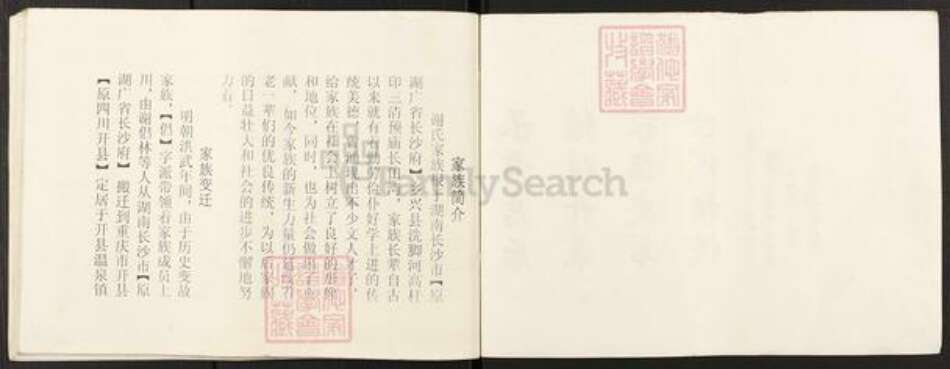 家族简介
谢氏家族根于湖南长沙市【原
湖广省长沙府】长兴县洗脚河高杆
印三消预庙长田湾，家族长辈自古
以来就有有勤劳俭仆好学上进的传
统美德，曾涌现出不少文人才子，
给家族在社会上树立了良好的形像
和地位，同时，也为社会做出了贡
献，如今家族的新生力量仍
老一辈们的优良传统，为以后家族
的日益壮大和社会的进步不懈地努
力着。
家族变迁
明朝洪武年间，由于历史变故
家族，【倡】字派带领着家族成员上
川，由谢倡林等人从湖南长沙市【原
湖广省长沙府】搬迁到重庆市开县
【原四川开县】定居于开县温泉镇
FamilySearch